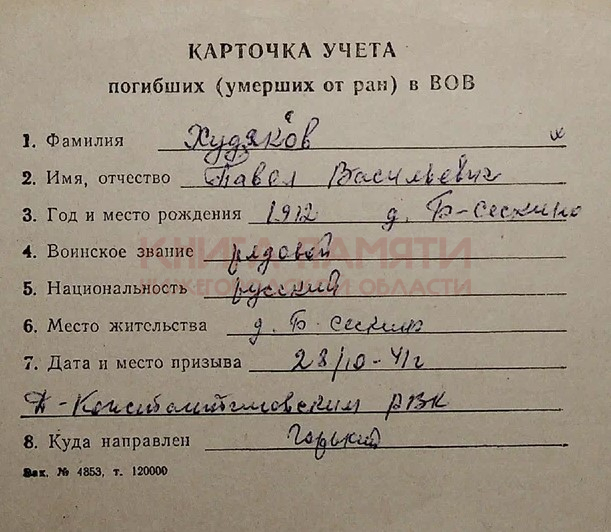 КАРТОЧКА УЧЕТА
погибших (умерших от ран) в ВОВ
1. Фамилия Худяков
2. Имя, отчество Павел Васильевич
3. Год и место рождения 1912 д. Б-Сескино
4. Воинское звание рядовой
КНИГА ПАМЯТИ
НИЖЕГОРОДСКОЙ ОБЛАСТИ
5. Национальность русский
6. Место жительства д. Б. Сескино
7. Дата и место призыва 28/10-41г
Д-Константиновским РВК
8. Куда направлен Горький
Зак. № 4853, т. 120000